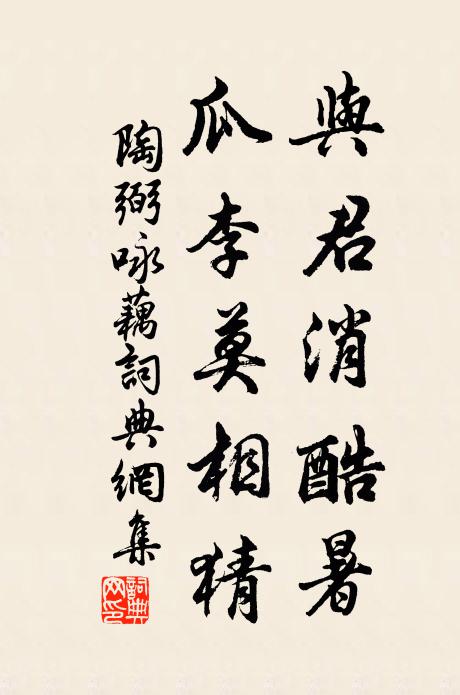 與君消酷暑
瓜李莫相猜
陶弼咏藕詞典網集
詞典網印